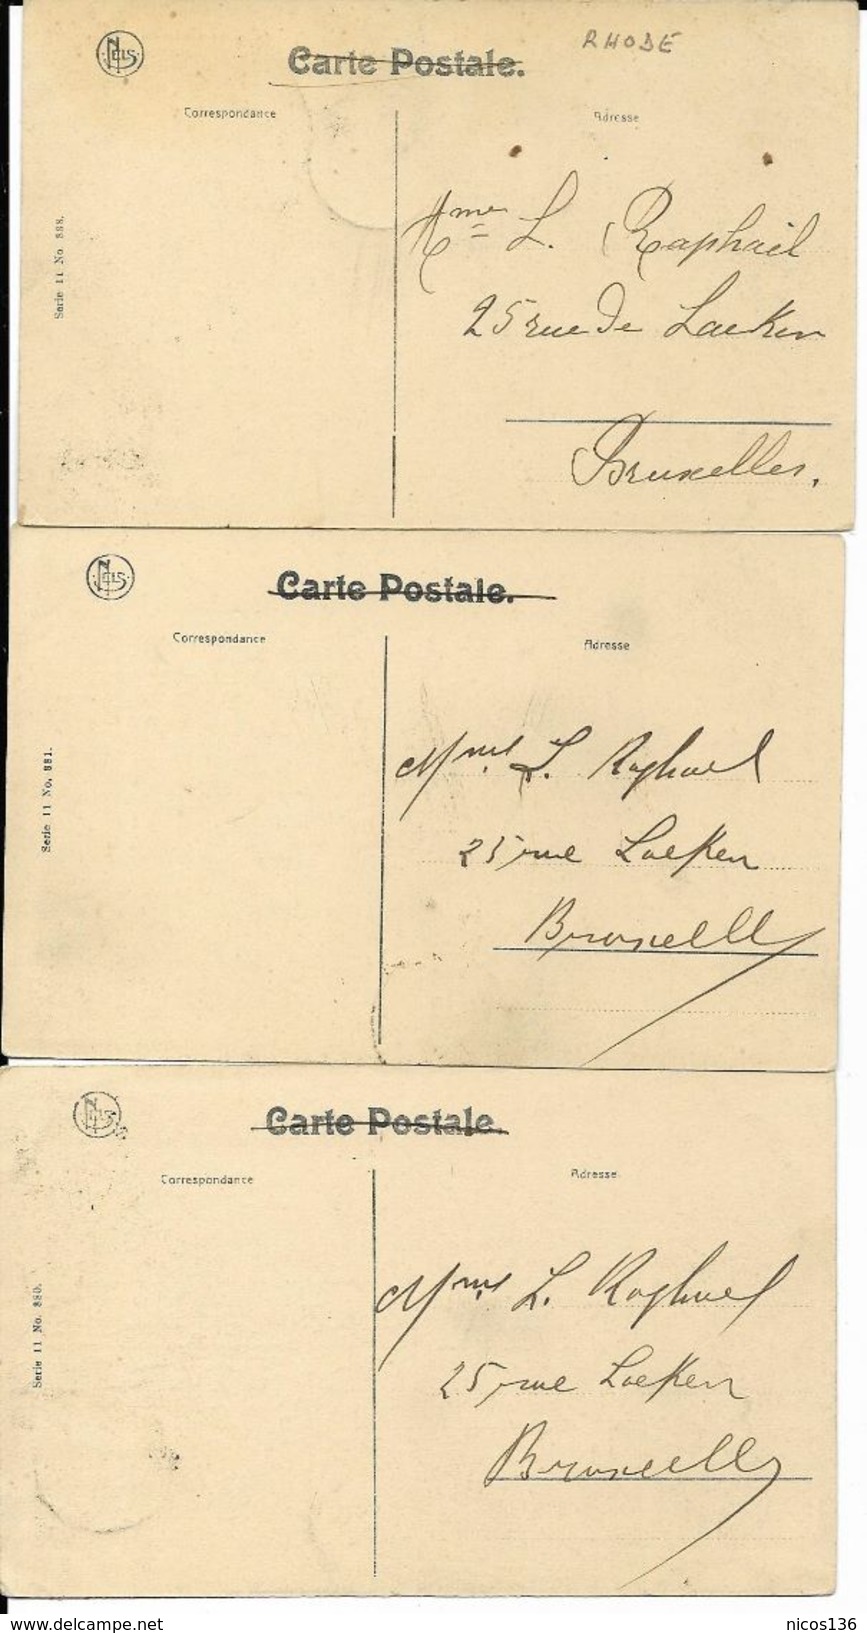 NELS
Carte Postale.
RHODE
Correspondance
Adresse
Serie 11 No 888.
Mme L. Raphaël
25 rue de Laeken
Bruxelles.
NELS
Carte Postale.
Correspondance
Adresse
Serie 11 No. 881.
Mme L. Raphael
25 rue Laeken
Bruxelles
NELS
Carte Postale.
Correspondance
Adresse
Serie 11 No. 880.
Mme L. Raphael
25 rue Laeken
Bruxelles
www.delcampe.net
nicos136